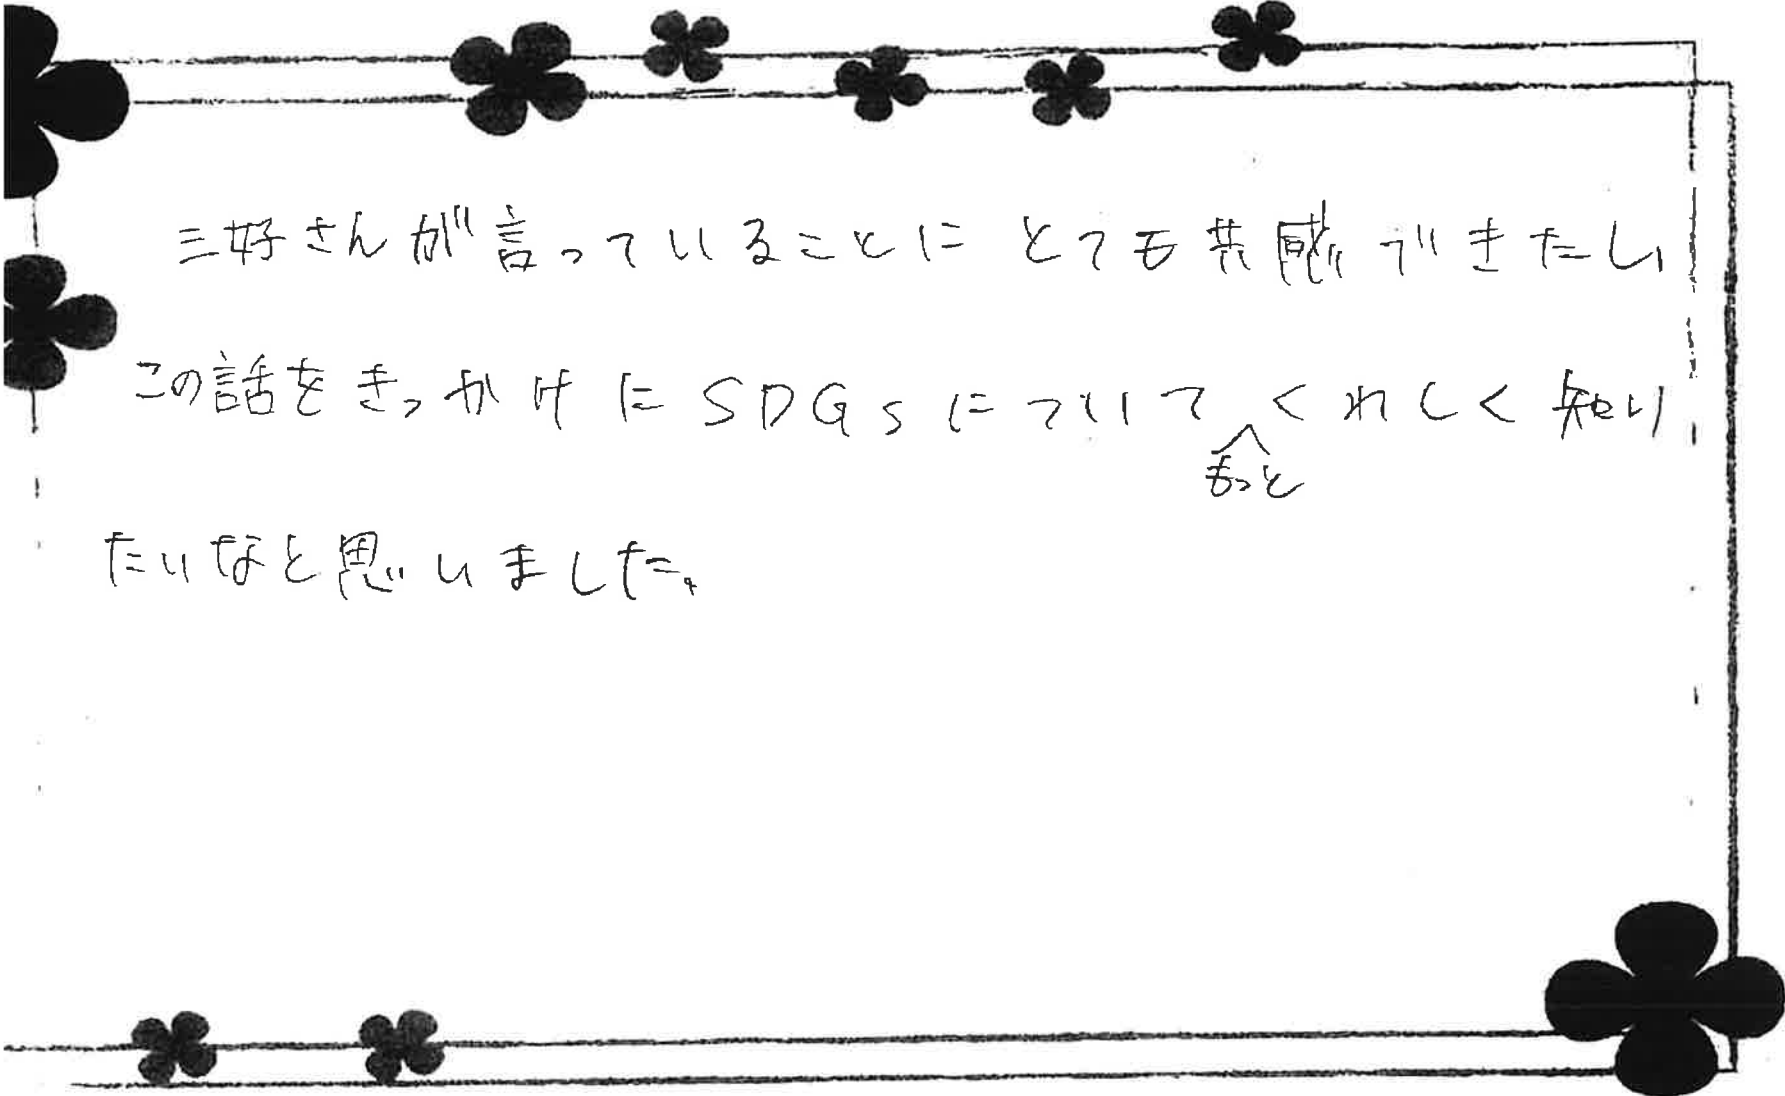 三好さんが言っていることにとても共感できたし、
この話をきっかけにSDGsについてもっとくわしく知り
たいなと思いました。